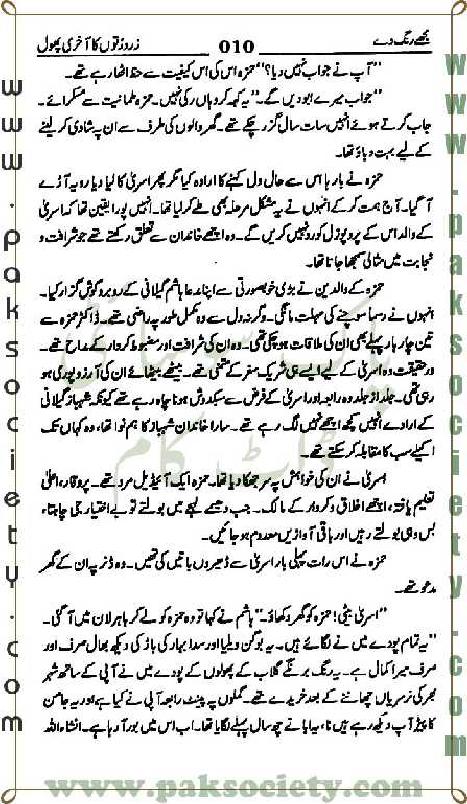 مجھے رنگ دے
010
زرد رُتوں کا آخری پھول
’’آپ نے جواب نہیں دیا؟‘‘ حمزہ اس کی اس کیفیت سے حظ اٹھا رہے تھے۔
’’جواب میرے ابو دیں گے۔‘‘ یہ کہہ کر وہاں رکی نہیں۔ حمزہ طمانیت سے مسکرائے۔
جاب کرتے ہوئے انہیں سات سال گزر چکے تھے۔ گھر والوں کی طرف سے ان پہ شادی کر لینے
کے لیے بہت دباؤ تھا۔
حمزہ نے بارہا اس سے حال دل کہنے کا ارادہ کیا مگر پھر اسریٰ کا لیا دیا رویہ آڑے
آ گیا۔ آج ہمت کر کے انہوں نے یہ مشکل مرحلہ بھی طے کر لیا تھا۔ انہیں پورا یقین تھا کہ اسریٰ
کے والد اس کے پروپوزل کو رد نہیں کریں گے۔ وہ اچھے خاندان سے تعلق رکھتے تھے جو شرافت و
نجابت میں مثالی سمجھا جاتا تھا۔
حمزہ کے والدین نے بڑی خوبصورتی سے اپنا مدعا ہاشم گیلانی کے روبرو گوش گزار کیا۔
انہوں نے رسماً سوچنے کی مہلت مانگی۔ وگرنہ دل سے وہ مکمل طور پہ راضی تھے۔ ڈاکٹر حمزہ سے
تین چار بار پہلے بھی ان کی ملاقات ہو چکی تھی۔ وہ ان کی شرافت اور مضبوط کردار کے مداح تھے۔
درحقیقت وہ اسریٰ کے لیے ایسے ہی شریک سفر کے متمنی تھے۔ بیٹھے بٹھائے ان کی آرزو پوری ہو
رہی تھی۔ جلد از جلد وہ رابعہ اور اسریٰ کے فرض سے سبکدوش ہونا چاہ رہے تھے کیونکہ شہباز گیلانی
کے ارادے انہیں کچھ اچھے نہیں لگ رہے تھے۔ سارا خاندان شہباز کا ہم نوا تھا، وہ کہاں تک
اکیلے سب کا مقابلہ کر سکتے تھے۔
اسریٰ نے ان کی خواہش پہ سر جھکا دیا تھا۔ حمزہ ایک آئیڈیل مرد تھے۔ پروقار، اعلیٰ
تعلیم یافتہ، اچھے اخلاق و کردار کے مالک۔ جب دھیمے لہجے میں بولتے تو بے اختیار جی چاہتا،
بس وہی بولتے رہیں اور باقی آوازیں معدوم ہو جائیں۔
حمزہ نے اس رات پہلی بار اسریٰ سے ڈھیروں باتیں کی تھیں۔ وہ ڈنر پہ ان کے گھر
مدعو تھے۔
’’اسریٰ بیٹی! حمزہ کو گھر دکھاؤ۔‘‘ ہاشم نے کہا تو وہ حمزہ کو لے کر باہر لان میں آ گئی۔
’’یہ تمام پودے میں نے لگائے ہیں۔ یہ بوگن ویلیا اور سدا بہار کی باڑ کی دیکھ بھال صرف اور
صرف میرا کمال ہے۔ یہ رنگ برنگے گلاب کے پھولوں کے پودے میں نے آپی کے ساتھ شہر
بھر کی نرسریاں چھاننے کے بعد خریدے تھے۔ گملوں پہ پینٹ رابعہ آپی نے کیا ہے اور یہ جامن
کا پیڑ آپ دیکھ رہے ہیں نا، یہ پاپا نے چھ سال پہلے لگایا تھا۔ اب اس میں بور آ رہا ہے۔ انشاء اللہ
www.paksociety.com
www.paksociety.com
www.paksociety.com
پاک سوسائٹی
ڈاٹ کام